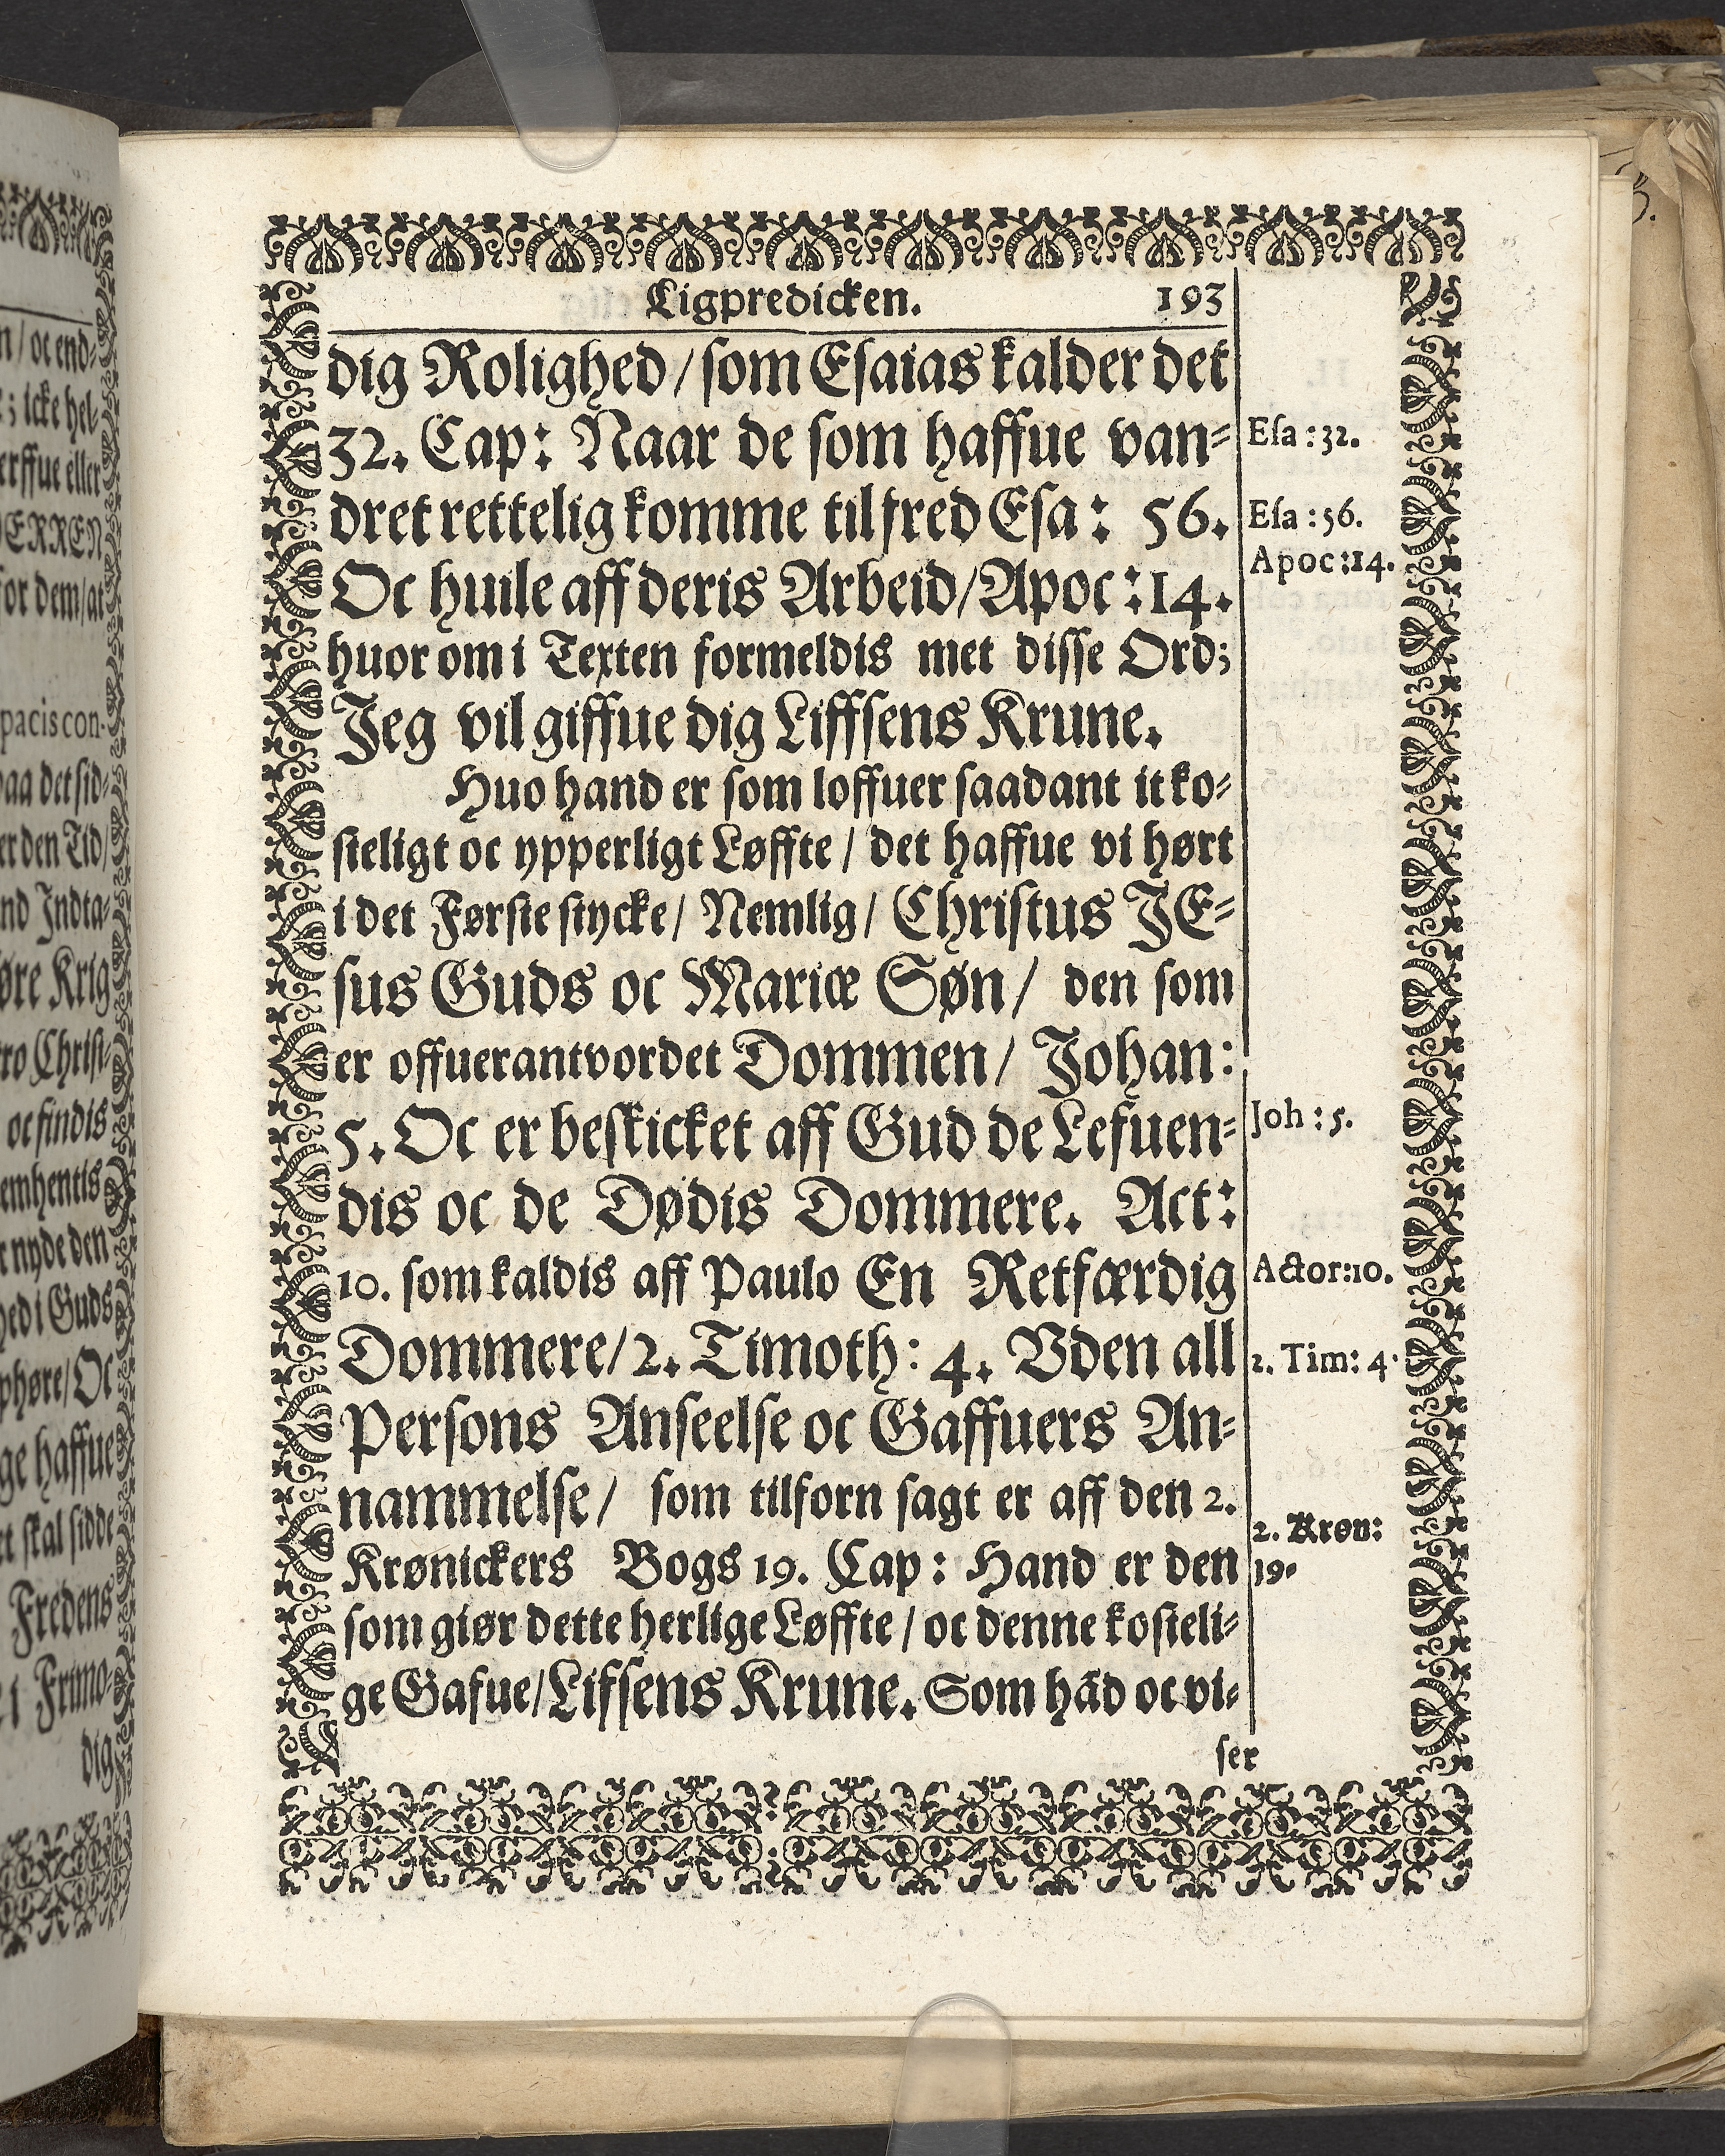 Ligpredicken. 193
dig Rolighed / som Esaias kalder det
32. Cap: Naar de som haffue van-
dret rettelig komme til fred Esa: 56.
Oc huile aff deris Arbeid / Apoc: 14.
huor om i Texten formeldis met disse Ord;
Jeg vil giffue dig Liffsens Krune.
Huo hand er som loffuer saadant it ko-
steligt oc ypperligt Løffte / det haffue vi hørt
i det Første stycke / Nemlig / Christus JE-
sus Guds oc Mariæ Søn / den som
er offuerantvordet Dommen / Johan:
5. Oc er beskicket aff Gud de Lefuen-
dis oc de Dødis Dommere. Act:
10. som kaldis aff Paulo En Retfærdig
Dommere / 2. Timoth: 4. Vden all
Persons Anseelse oc Gaffuers An-
nammelse / som tilforn sagt er aff den 2.
Krønickers Bogs 19. Cap: Hand er den
som giør dette herlige Løffte / oc denne kosteli-
ge Gafue / Lifsens Krune. Som hād oc vi-
ser
Esa: 32.
Esa: 56.
Apoc: 14.
Joh: 5.
Actor: 10.
2. Tim: 4.
2. Krøn:
19.
n / oc end-
icke hel-
erffue eller
ERREN
for dem / at
pacis con-
paa det sid-
er den Tid /
nd Indta-
øre Krig
ro Christ-
oc findis
emhentis
nyde den
hed i Guds
phøre / Oc
ge haffue
et skal sidde
Fredens
i Frimo-
dig